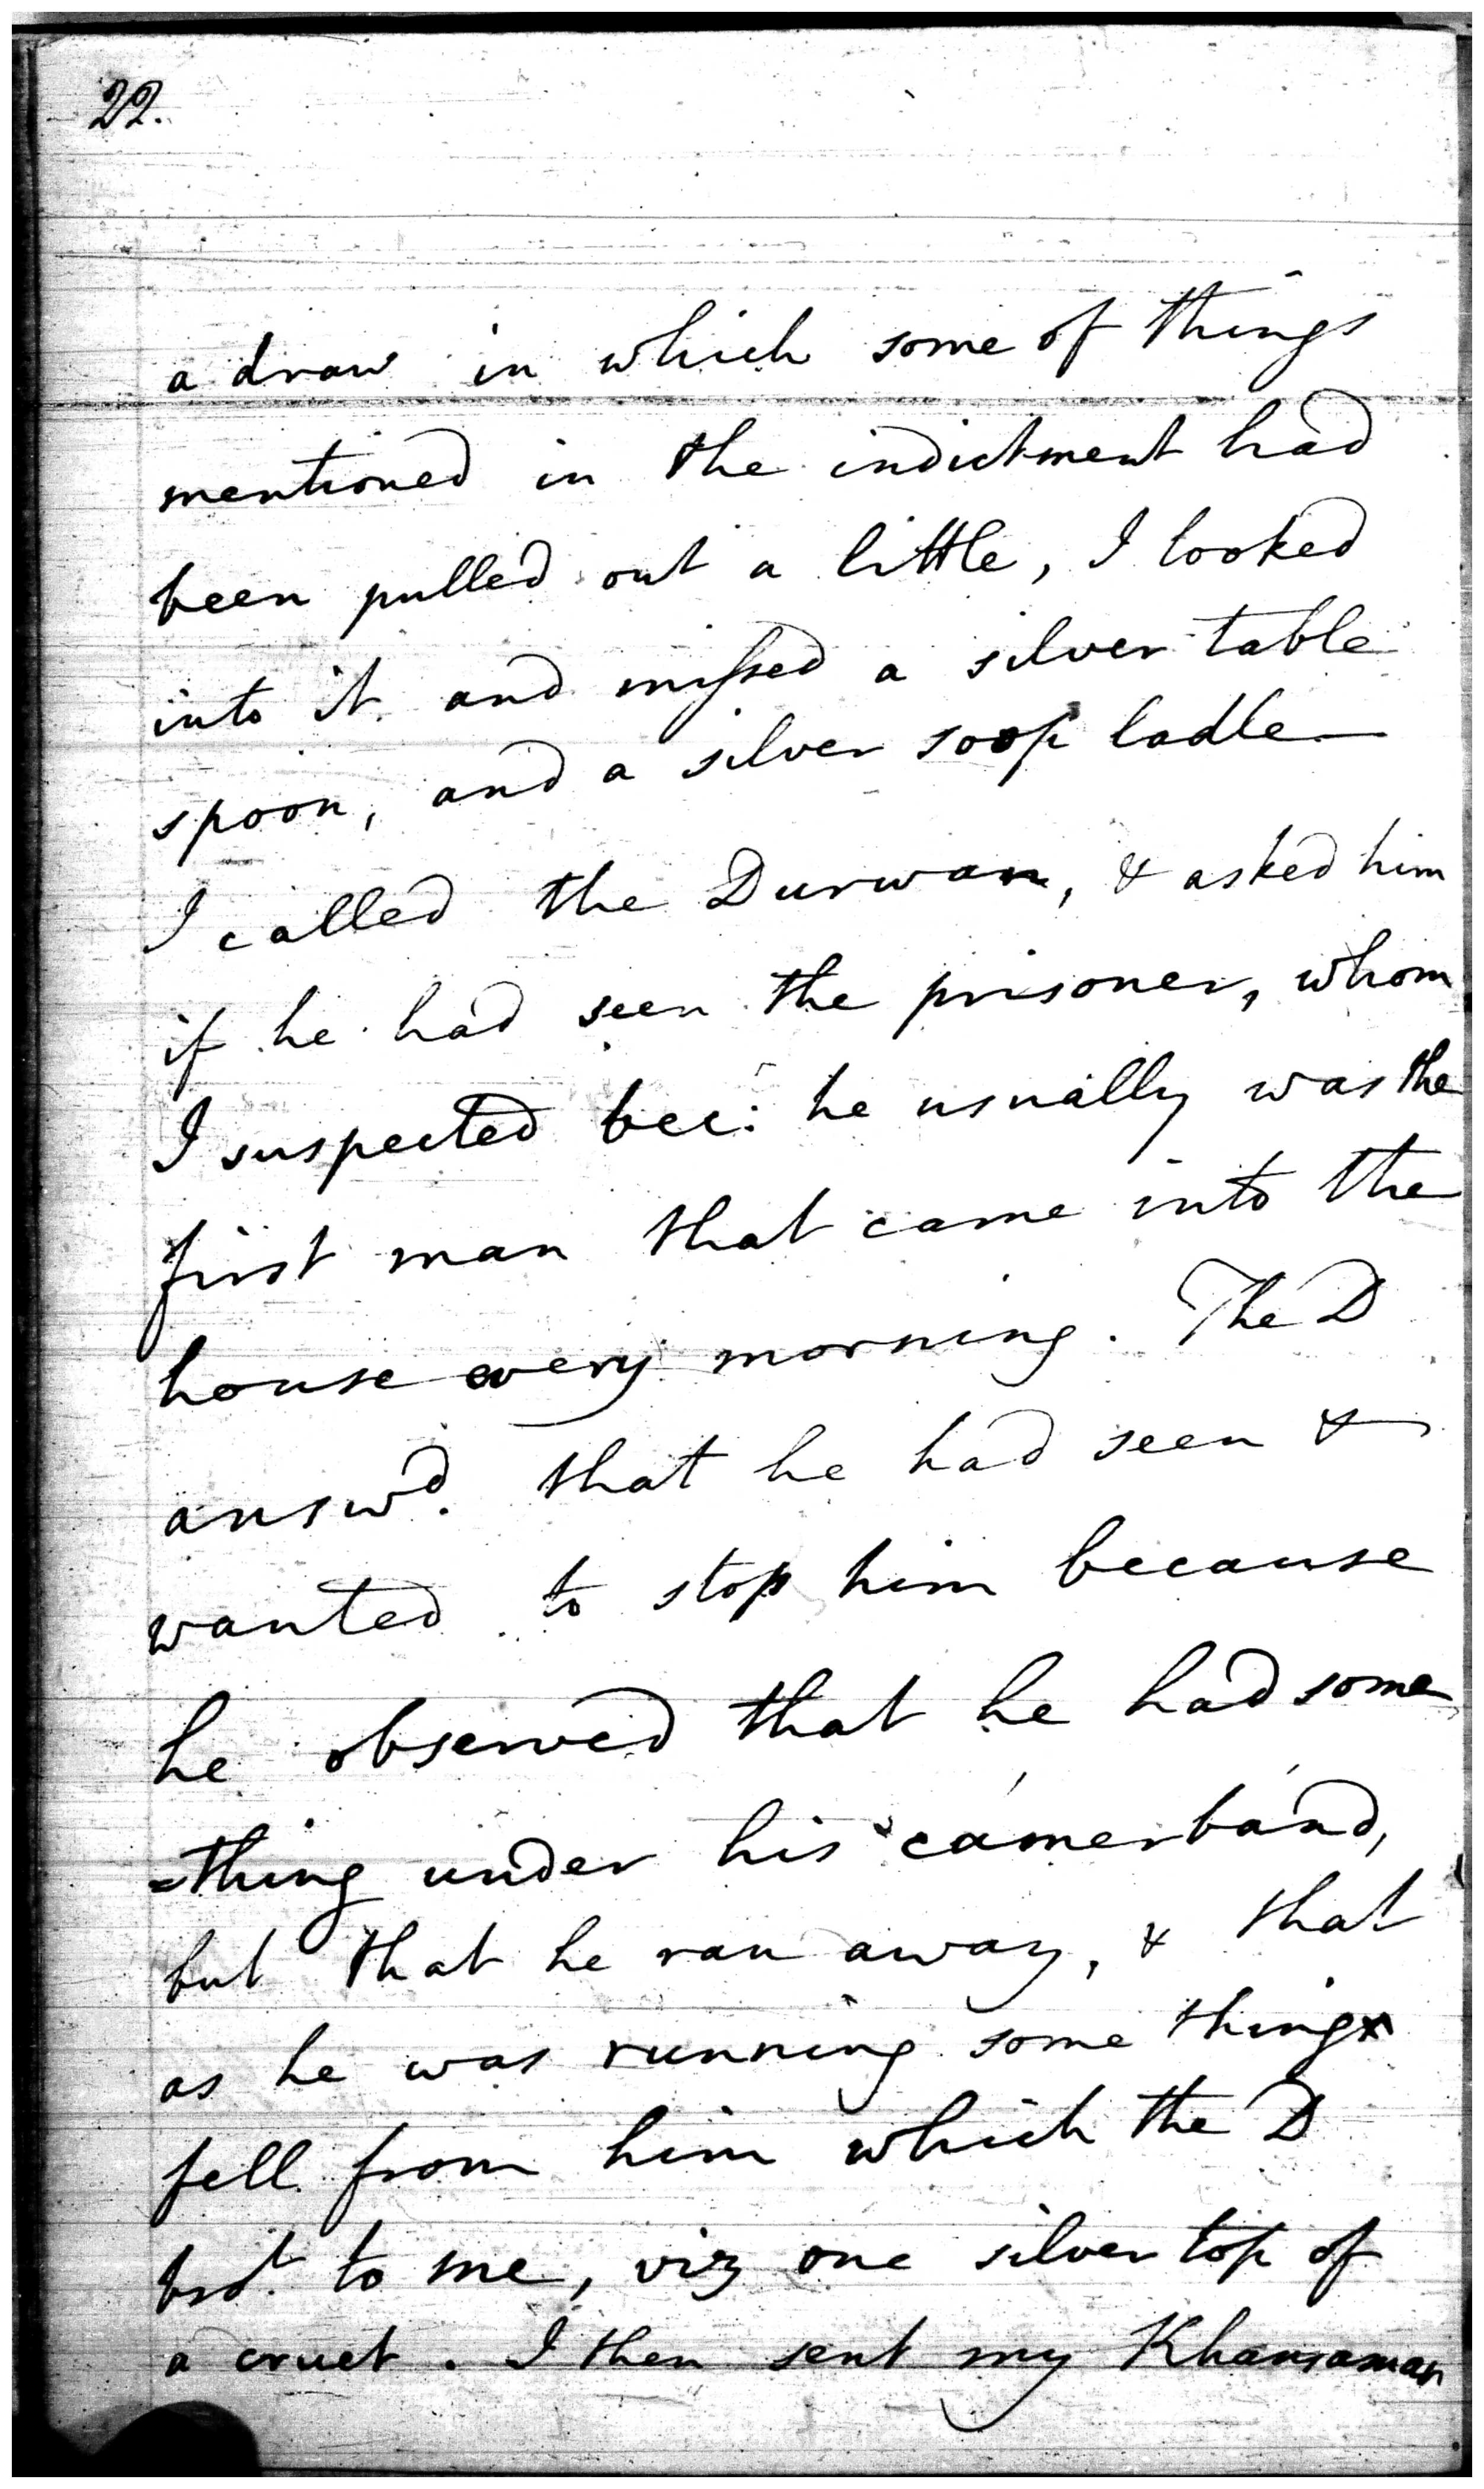 22.
a draw in which some of things
mentioned in the indictment had
been pulled out a little, I looked
into it and missed a silver table
spoon, and a silver soop ladle
I called the Durwan, & asked him
if he had seen the prisoner, whom
I suspected bec: he usually was the
first man that came into the
house every morning. The D
answd. that he had seen &
wanted to stop him because
he observed that he had some
=thing under his camerband,
but that he ran away, & that
as he was running some things
fell from him which the D
brot. to me, viz one silver top of
a cruet. I then sent my Khansaman